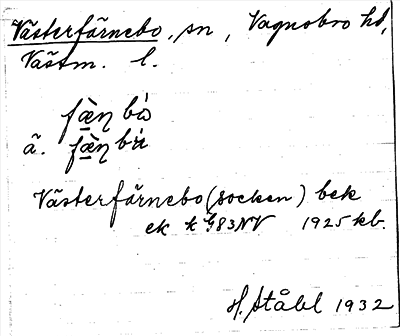 Västerfärnebo, sn, Vagnsbro hd,
Västm. l.
fæ̀ŋ bò
ä. fæ̀ŋ bù
Västerfärnebo (socken) bek
ek k G83NV 1925 kb.
H. Ståhl 1932